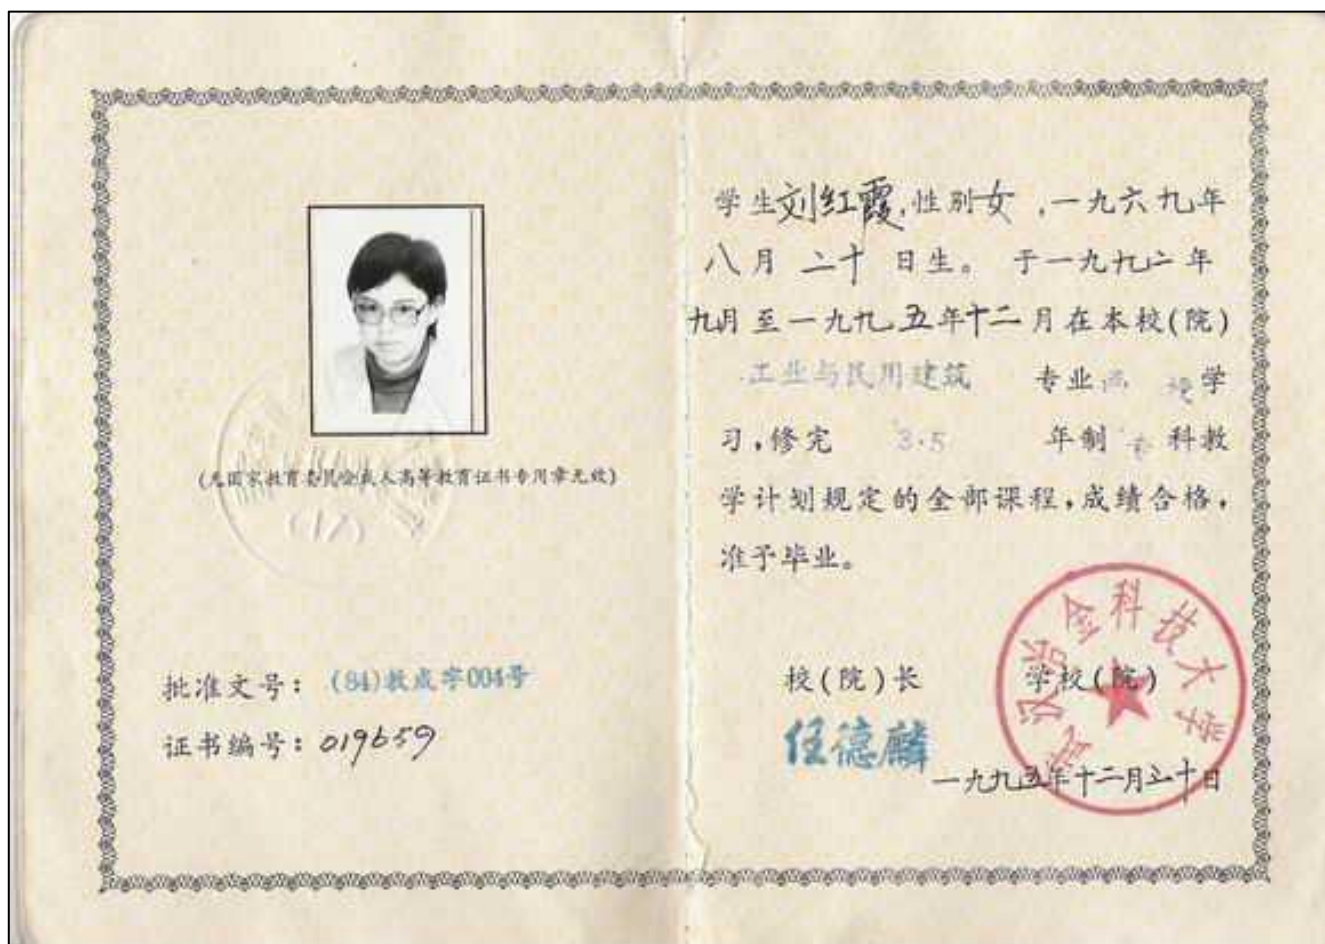 (无国家教育委员会成人高等教育证书专用章无效)
批准文号：(84)教成字004号
证书编号：019659
学生刘红霞,性别女,一九六九年
八月二十日生。于一九九二年
九月至一九九五年十二月在本校(院)
工业与民用建筑 专业 学
习,修完 3.5 年制专科教
学计划规定的全部课程,成绩合格,
准予毕业。
校(院)长 学校(院)
任德麟
武汉冶金科技大学
一九九五年十二月三十日